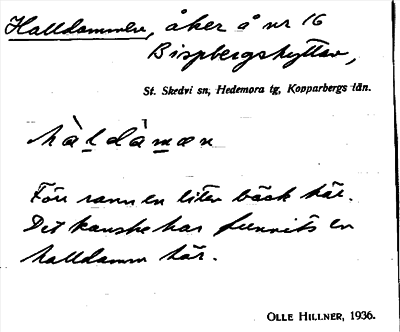 Halldammen, åker å nr 16
Bispbergshyttan,
St. Skedvi sn, Hedemora tg, Kopparbergs län.
hàldàmæn
Förr rann en liten bäck här.
Det kanske har funnits en
halldamm här.
OLLE HILLNER, 1936.